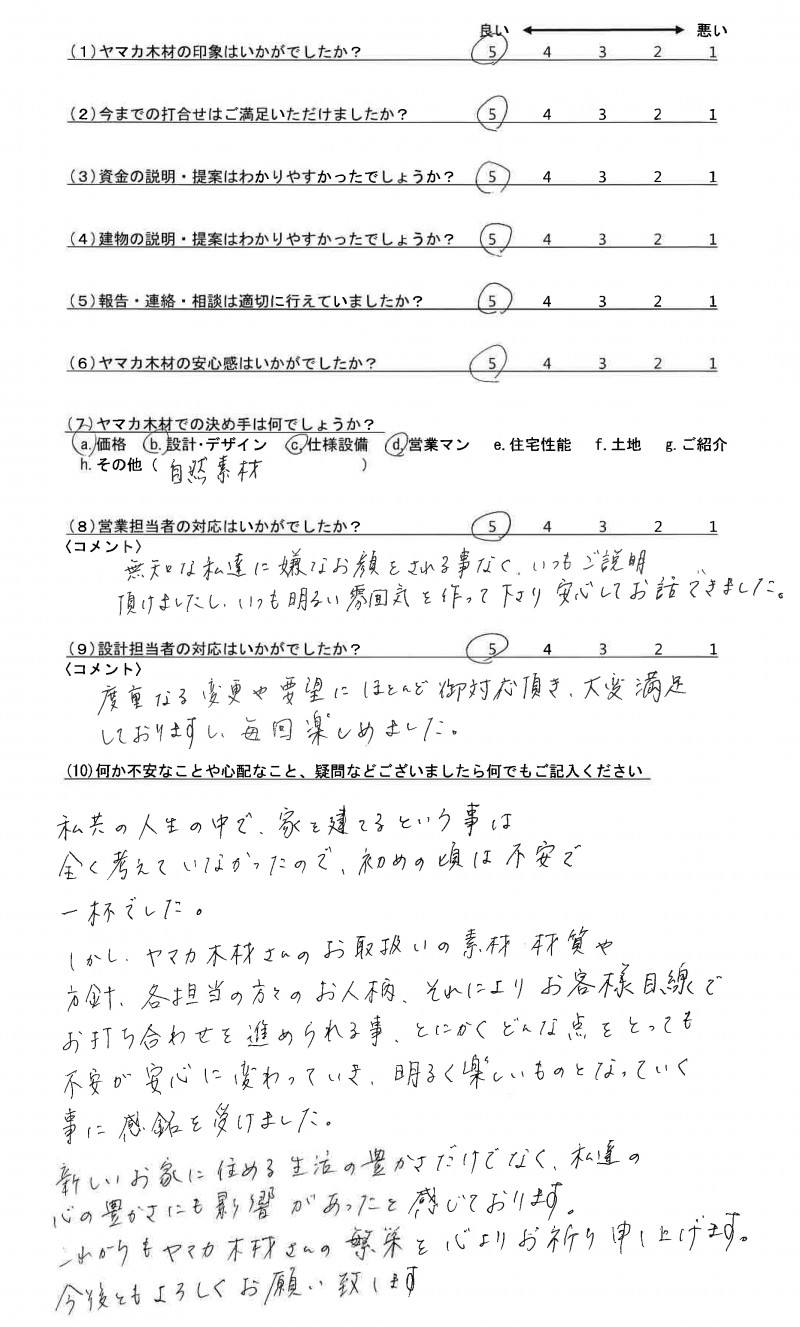 良い ←→ 悪い
(1)ヤマカ木材の印象はいかがでしたか? 5 4 3 2 1
(2)今までの打合せはご満足いただけましたか? 5 4 3 2 1
(3)資金の説明・提案はわかりやすかったでしょうか? 5 4 3 2 1
(4)建物の説明・提案はわかりやすかったでしょうか? 5 4 3 2 1
(5)報告・連絡・相談は適切に行えていましたか? 5 4 3 2 1
(6)ヤマカ木材の安心感はいかがでしたか? 5 4 3 2 1
(7)ヤマカ木材での決め手は何でしょうか?
a.価格 b.設計・デザイン c.仕様設備 d.営業マン e.住宅性能 f.土地 g.ご紹介
h.その他(自然素材)
(8)営業担当者の対応はいかがでしたか? 5 4 3 2 1
〈コメント〉
無知な私達に嫌なお顔をされる事なく、いつもご説明
頂けましたし、いつも明るい雰囲気を作って下さり安心してお話できました。
(9)設計担当者の対応はいかがでしたか? 5 4 3 2 1
〈コメント〉
度重なる変更や要望にほとんど御対応頂き、大変満足
しておりますし、毎回楽しめました。
(10)何か不安なことや心配なこと、疑問などございましたら何でもご記入ください
私共の人生の中で、家を建てるという事は
全く考えていなかったので、初めの頃は不安で
一杯でした。
しかし、ヤマカ木材さんのお取扱いの素材・材質や
方針、各担当の方々のお人柄、それによりお客様目線で
お打ち合わせを進められる事、とにかくどんな点をとっても
不安が安心に変わっていき、明るく楽しいものとなっていく
事に感銘を受けました。
新しいお家に住める生活の豊かさだけでなく、私達の
心の豊かさにも影響があったと感じております。
これからもヤマカ木材さんの繁栄を心よりお祈り申し上げます。
今後ともよろしくお願い致します